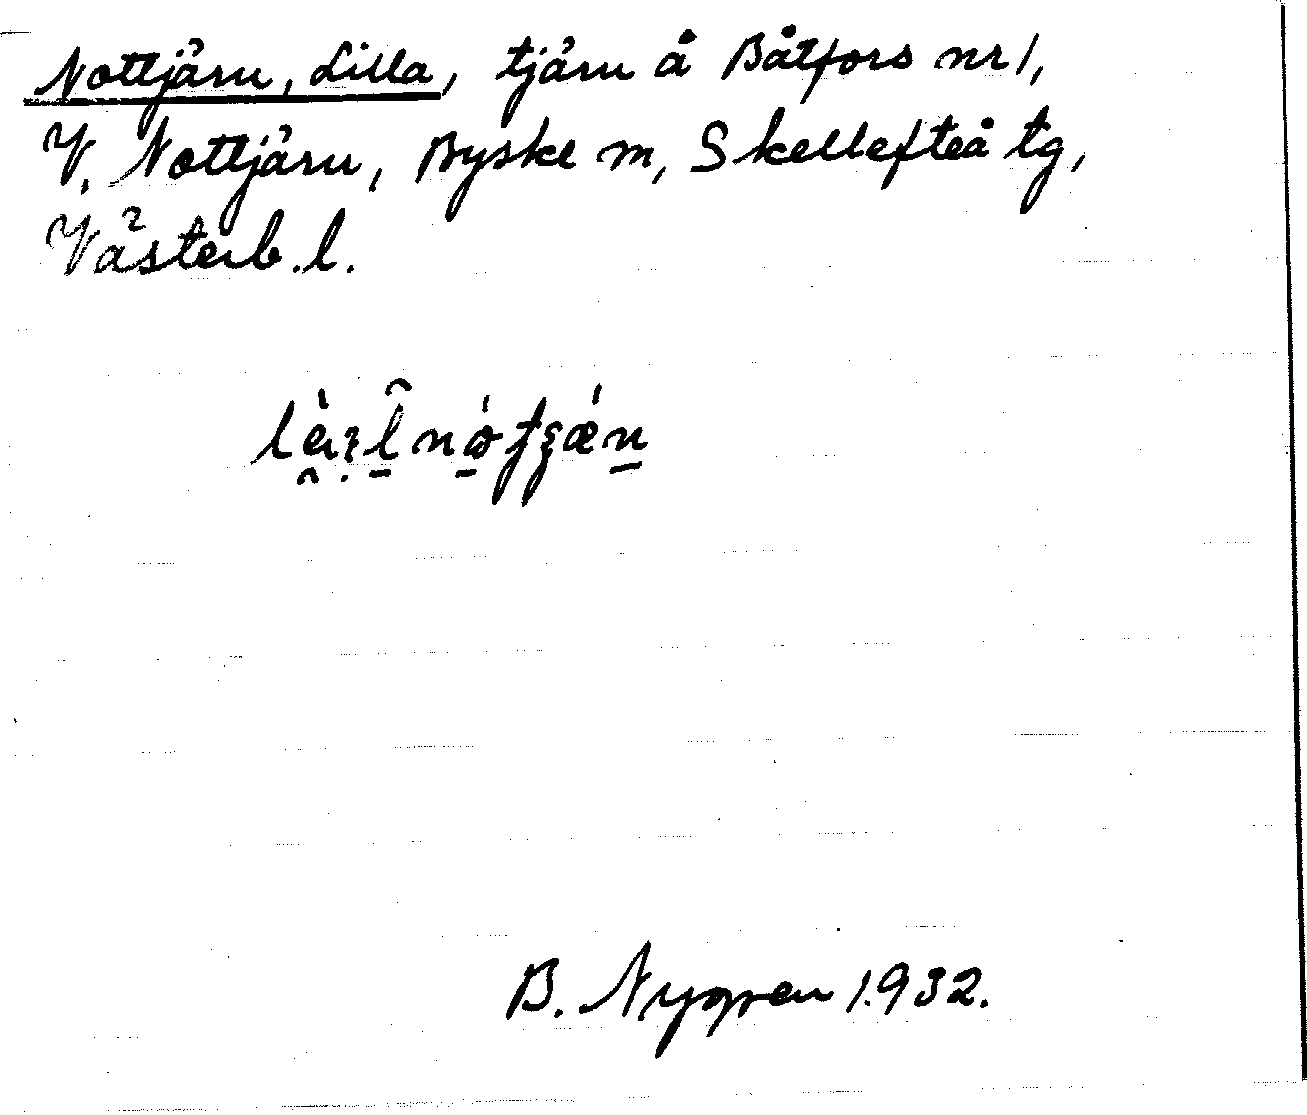 Nottjärn, Lilla, tjärn å Båtfors nr 1,
V. Nottjärn, Byske sn, Skellefteå tg,
Västerb. l.
B. Nygren 1932.